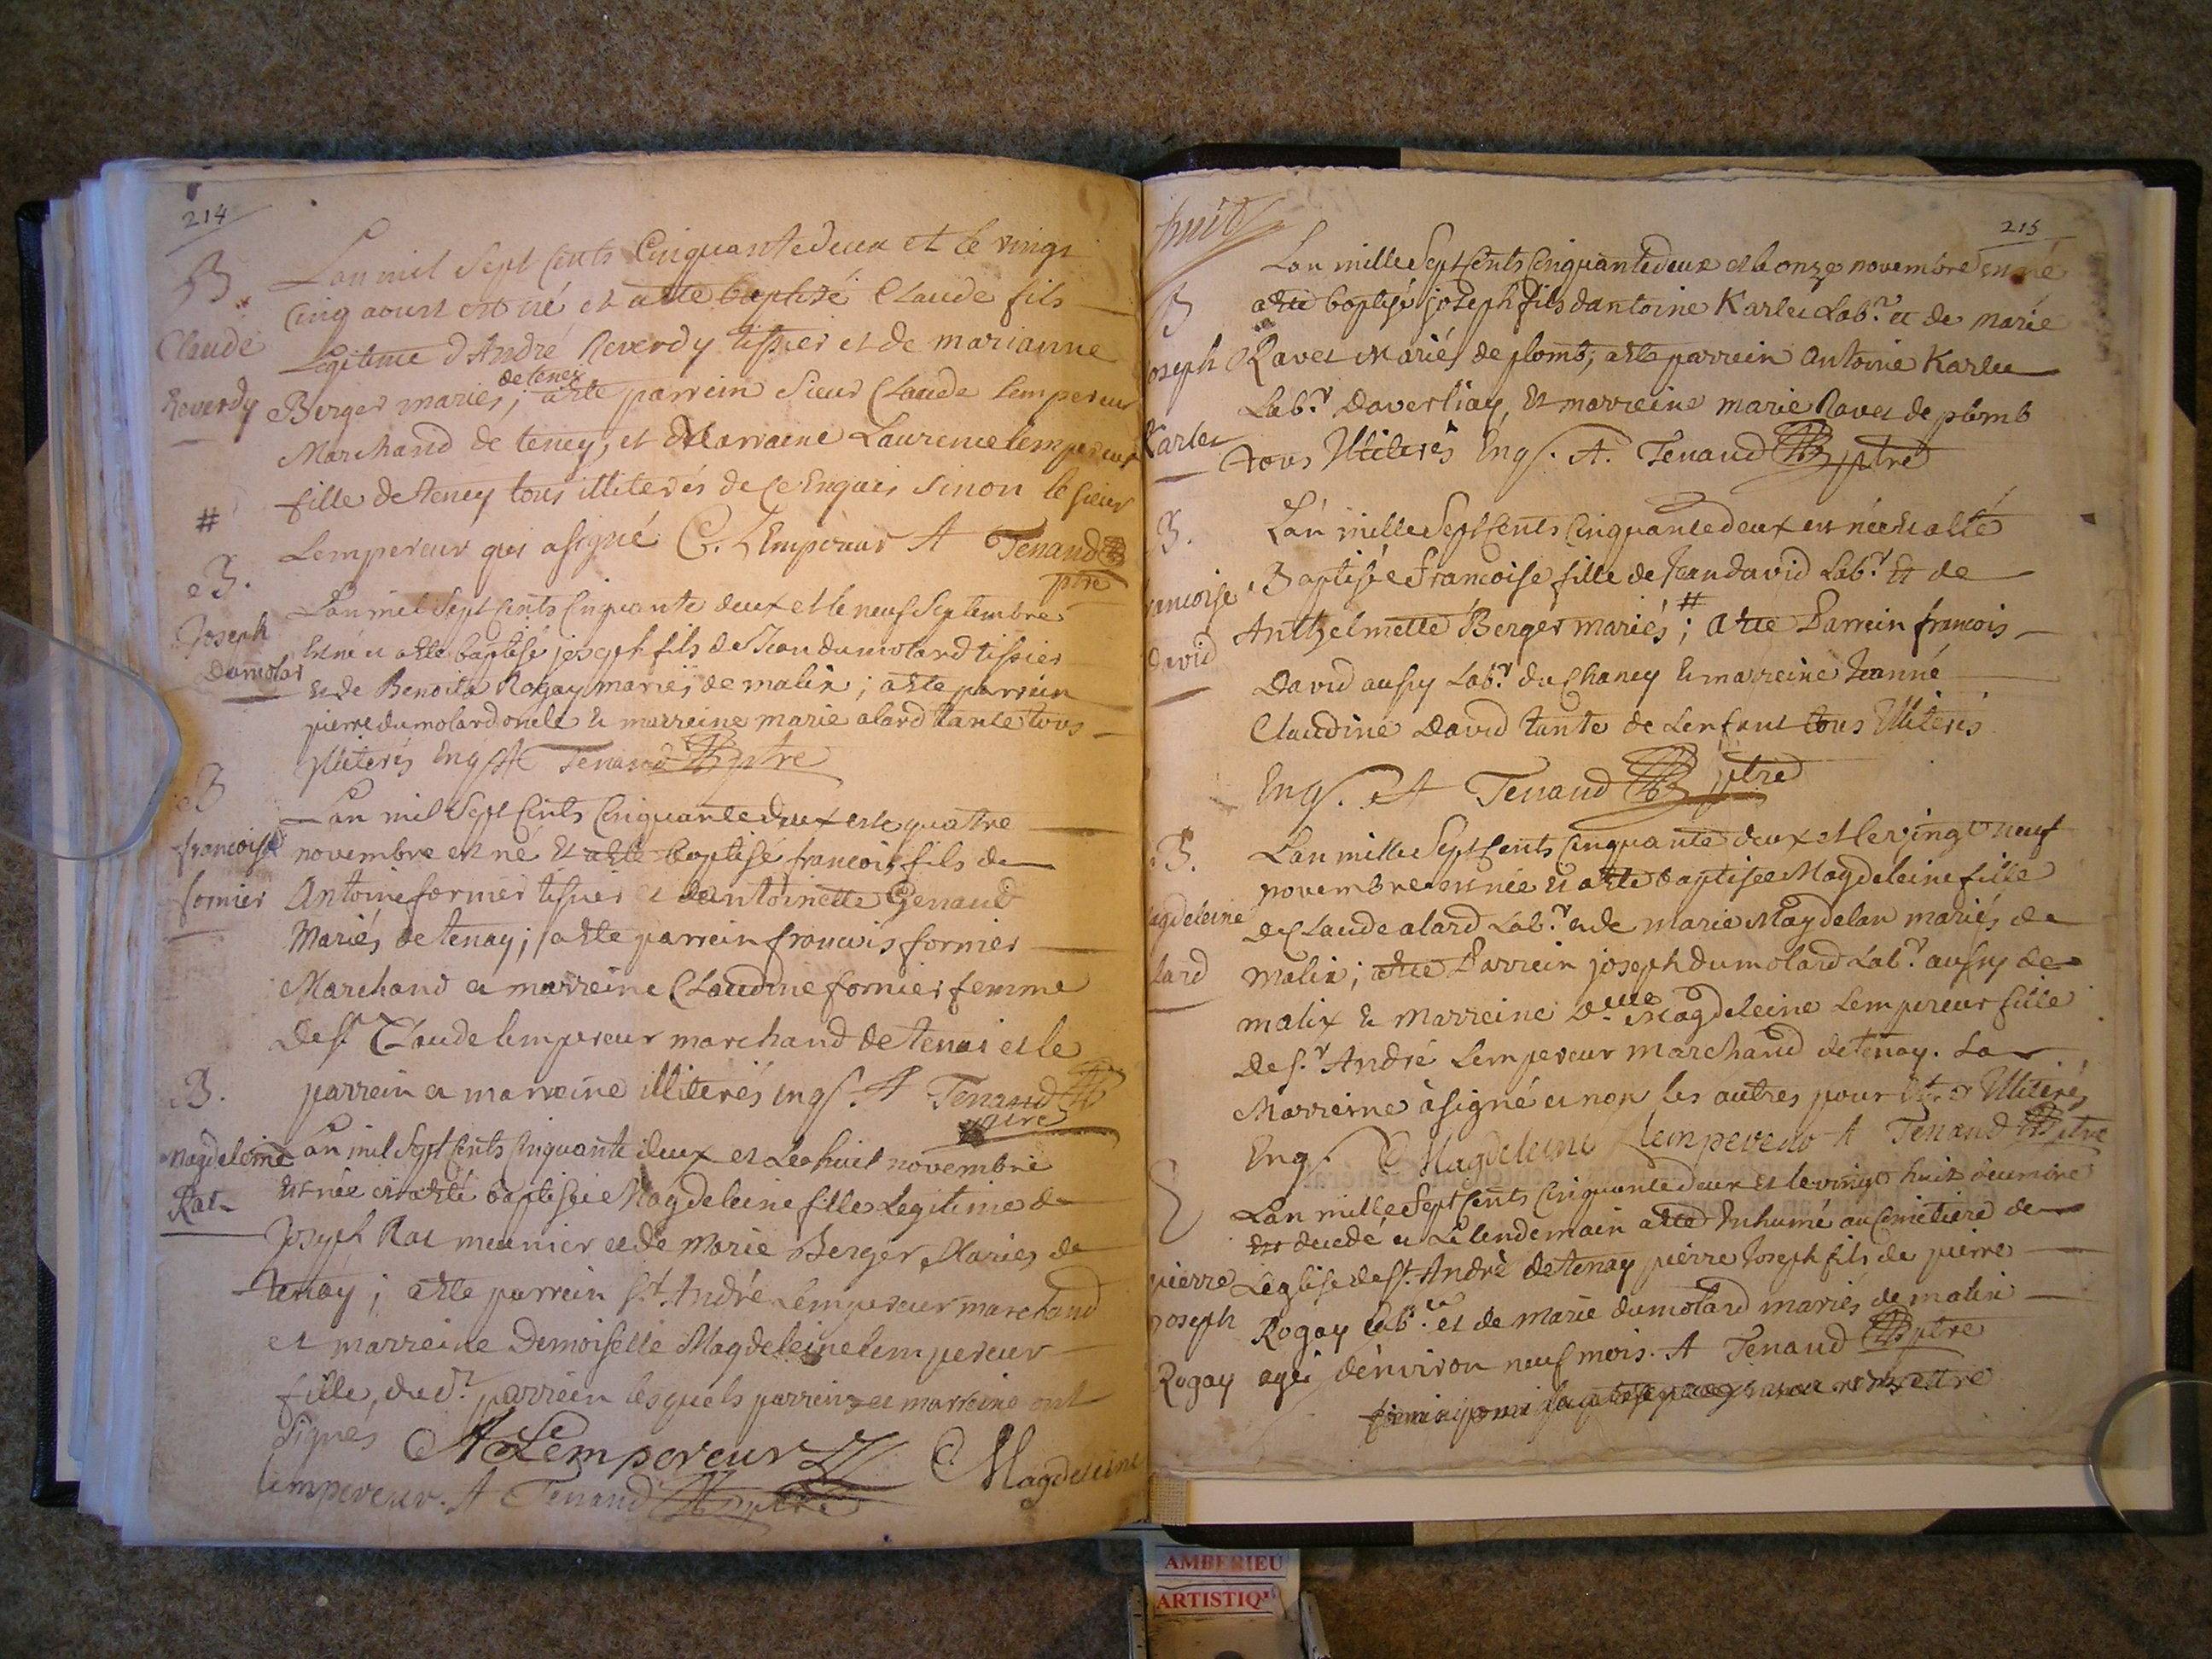 214
B.
Claude
Reverdy
Lan mil Sept Cents Cinquante deux et le vingt
Cinq aoust est né et a été baptisé Claude fils
Legitime d'André Reverdy tissier et de marianne
de teney
Berger mariés; a été parrein Sieur Claude Lempereur
Marchand de teney, et Marraine Laurence lempereur
fille de teney tous illiterés de ce Enquis sinon le sieur
#
Lempereur qui a signé C. LEmpereur A Tenand
ptre
B.
Joseph
Dumolar
Lan mil Sept Cents Cinquante deux et le neuf Septembre
Est né et a été baptisé joseph fils de Jean dumolard tissier
et de Benoite Rogay mariés de malix; a été parrein
pierre dumolard oncle et marreine marie alard tante tous
illiterés Enqs A Tenand ptre
B
francoise
fornier
Lan mil Sept Cents Cinquante deux et le quatre
novembre est né et a été baptisé francois fils de
Antoine fornier tissier et dantoinette Genaud
Mariés de tenay; a été parrein francois fornier
Marchand et marreine Claudine fornier femme
de sr. Claude lempereur marchand de tenai et le
parrein et marreine illiterés enqs. A Tenand
ptre
B.
Magdeleine
Rat
Lan mil Sept Cents Cinquante deux et Le huit novembre
est née et a été baptisée Magdeleine fille Legitime de
Joseph Rat meunier et de Marie Berger Mariés de
tenay; a été parrein Sr. André Lempereur marchand
et marreine Demoiselle Magdeleine lempereur
fille du dt. parrein lesquels parrein et marreine ont
Signés A Lempereur Magdeleine
lempereur. A Tenand ptre
huit
215
B
oseph
Karlet
Lan mille Sept Cents Cinquante deux et le onze novembre est né
a été baptisé joseph fils dantoine Karlet Labr. et de marie
Ravet Mariés de plomb; a été parrein Antoine Karlet
Labr. Daverliay, Et marreine marie Ravet de plomb
tous Illiterés Enqs. A. Tenand ptre
B.
rancoise
david
Lan mille Sept Cents Cinquante deux est née Et a été
Baptisée francoise fille de Jean david Labr. Et de
#
Anthelmette Berger mariés; a été Parrein francois
David aussy Labr. du Chaney Et marreine Jeanne
Claudine David tante de Lenfant tous Illiterés
Enqs. A Tenand ptre
B.
agdeleine
lard
Lan mille Sept Cents Cinquante deux et le vingt neuf
novembre est née et a été baptisée Magdeleine fille
de Claude alard Labr. et de marie Magdelan mariés de
Malix; a été Parrein joseph dumolard Labr. aussy de
malix Et Marreine Delle Magdeleine Lempereur fille
de sr. André Lempereur marchand de tenay. La
Marreine a signé et non les autres pour être Illiterés
Enqs. Magdeleine Lempereur A Tenand ptre
pierre
joseph
Rogay
Lan mille Sept Cents Cinquante deux Et le vingt huit
est decedé et Le lendemain a été Inhumé au Cimetiere de
Leglise de St. André de tenay pierre Joseph fils de pierre
Rogay Labr. et de marie dumolard mariés de malix
agé d'environ neuf mois. A Tenand ptre
AMBERIEU
ARTISTIQU